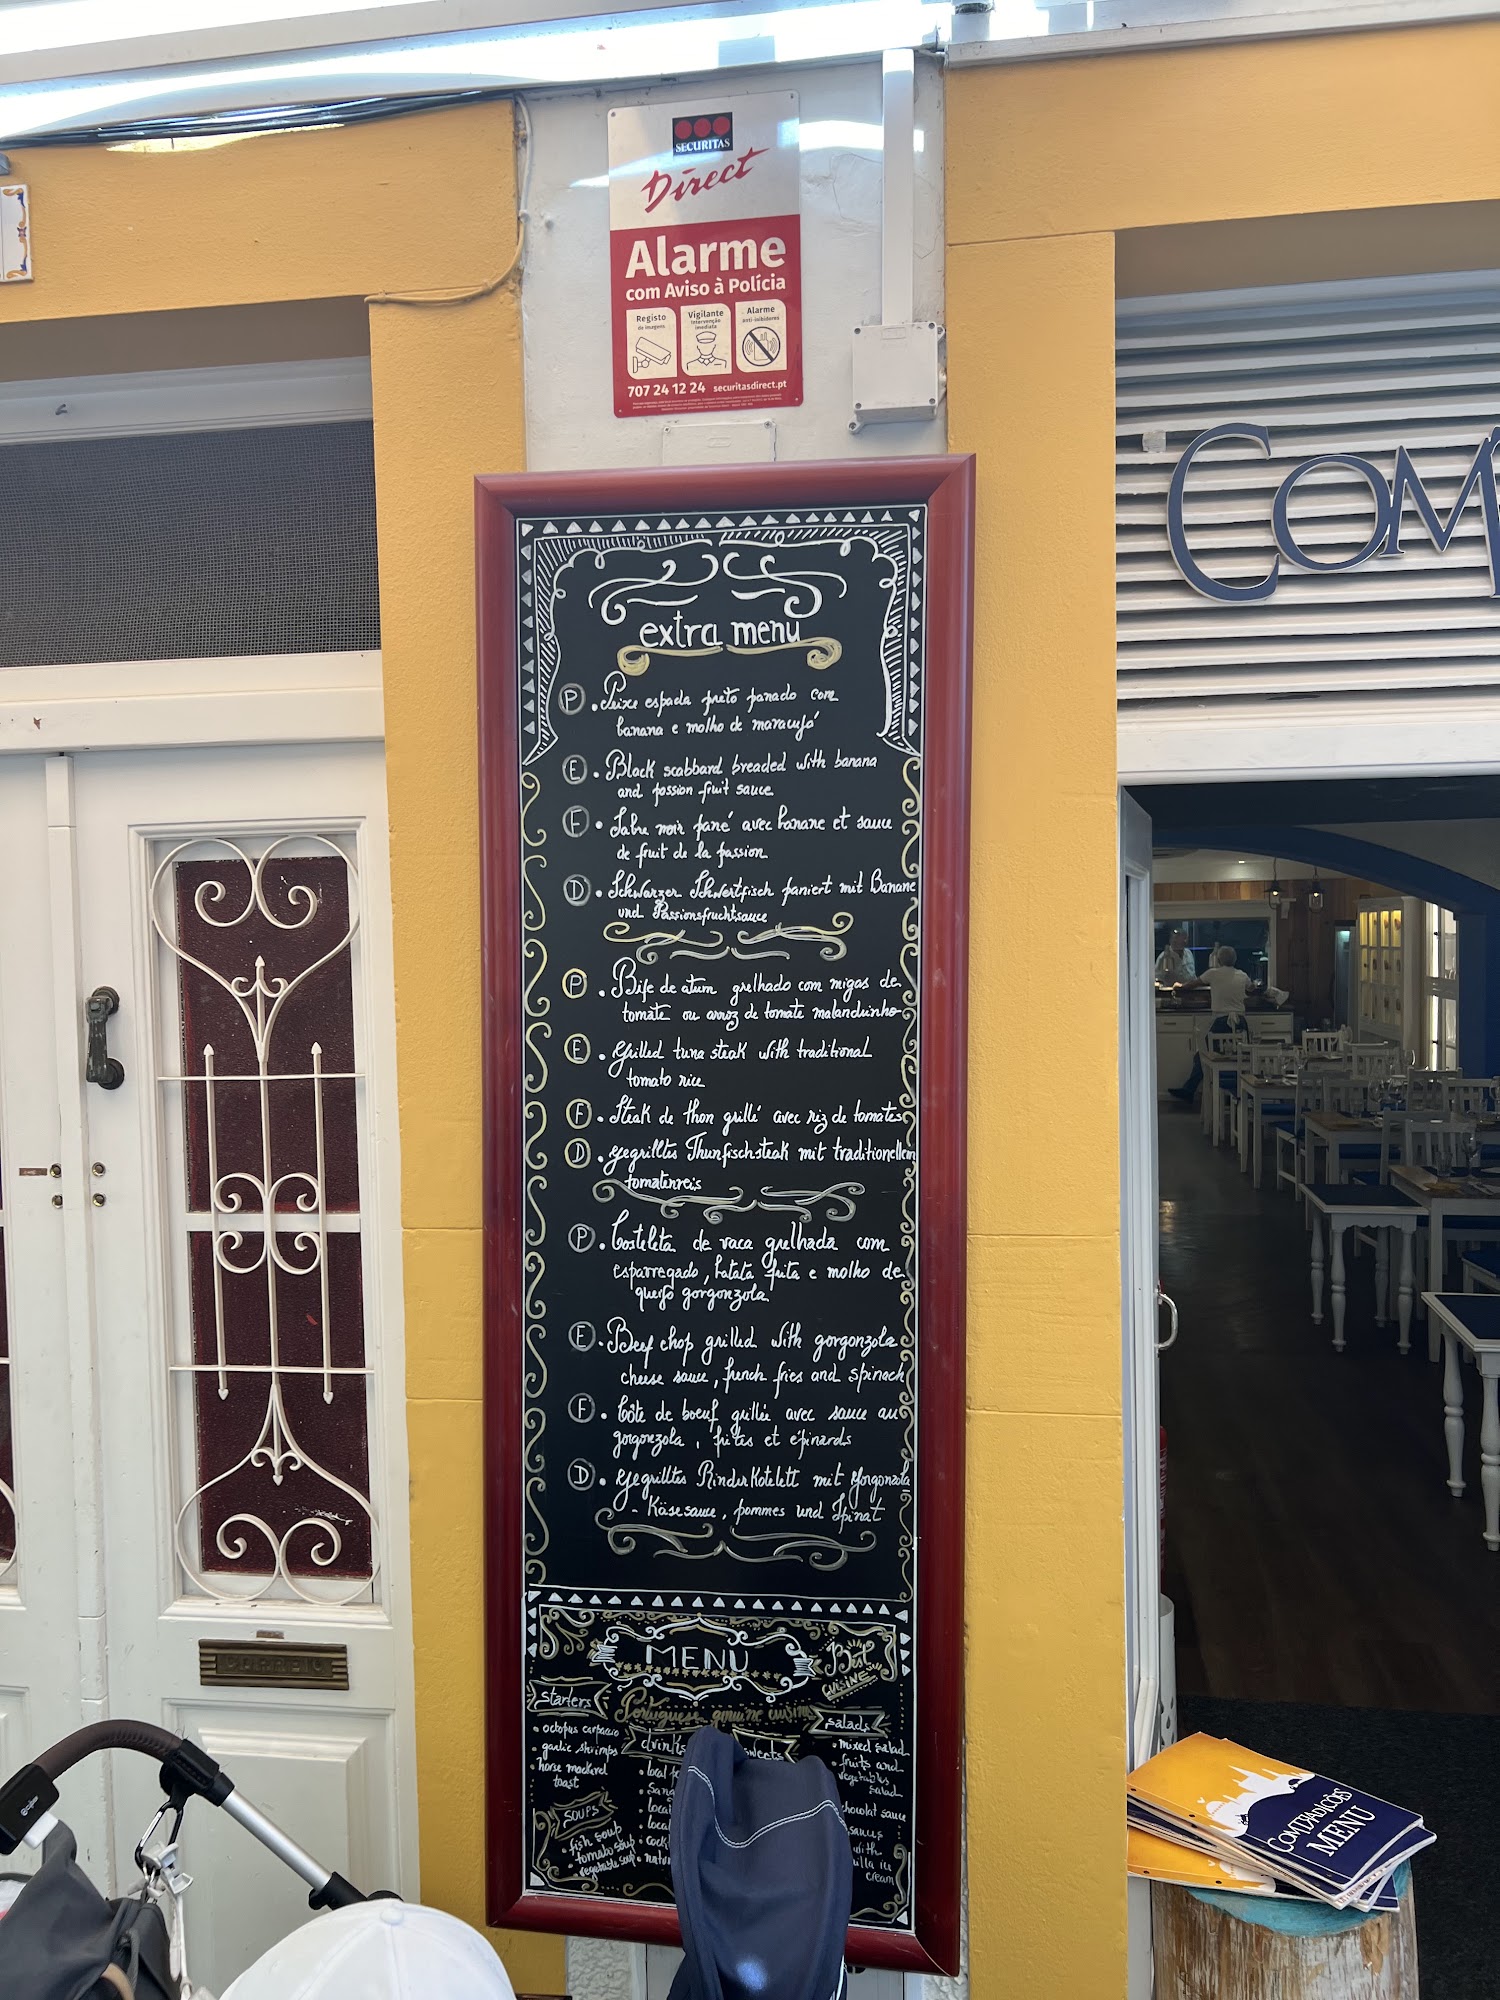 SECURITAS
Direct
Alarme
com Aviso à Polícia
Registo
de imagens
Vigilante
Intervenção
imediata
Alarme
anti-inibidores
707 24 12 24 securitasdirect.pt
COM
extra menu
P . Peixe espada preto panado com
banana e molho de maracujá
E . Black scabbard breaded with banana
and passion fruit sauce
F . Sabre noir pané avec banane et sauce
de fruit de la passion
D . Schwarzer Schwertfisch paniert mit Banane
und Passionsfruchtsauce
P . Bife de atum grelhado com migas de
tomate ou arroz de tomate malandrinho
E . Grilled tuna steak with traditional
tomato rice
F . Steak de thon grillé avec riz de tomates
D . gegrilltes Thunfischsteak mit traditionellem
tomatenreis
P . Costeleta de vaca grelhada com
esparregado, batata frita e molho de
queijo gorgonzola
E . Beef chop grilled with gorgonzola
cheese sauce, french fries and spinach
F . Côte de boeuf grillée avec sauce au
gorgonzola, frites et épinards
D . gegrilltes Rinder Kotelett mit gorgonzola
- Käsesauce, pommes und Spinat
MENU
Best
CUISINE
Portuguese genuine cuisine
starters
• octopus carpaccio
• garlic shrimps
• horse mackerel
toast
SOUPS
• fish soup
• tomato soup
• vegetable soup
drinks
• local
• local
• local
sweets
salads
• mixed salad
• fruits and
vegetables
salad
chocolat sauce
with
cream
CORREIO
CONTRADIÇÕES
MENU